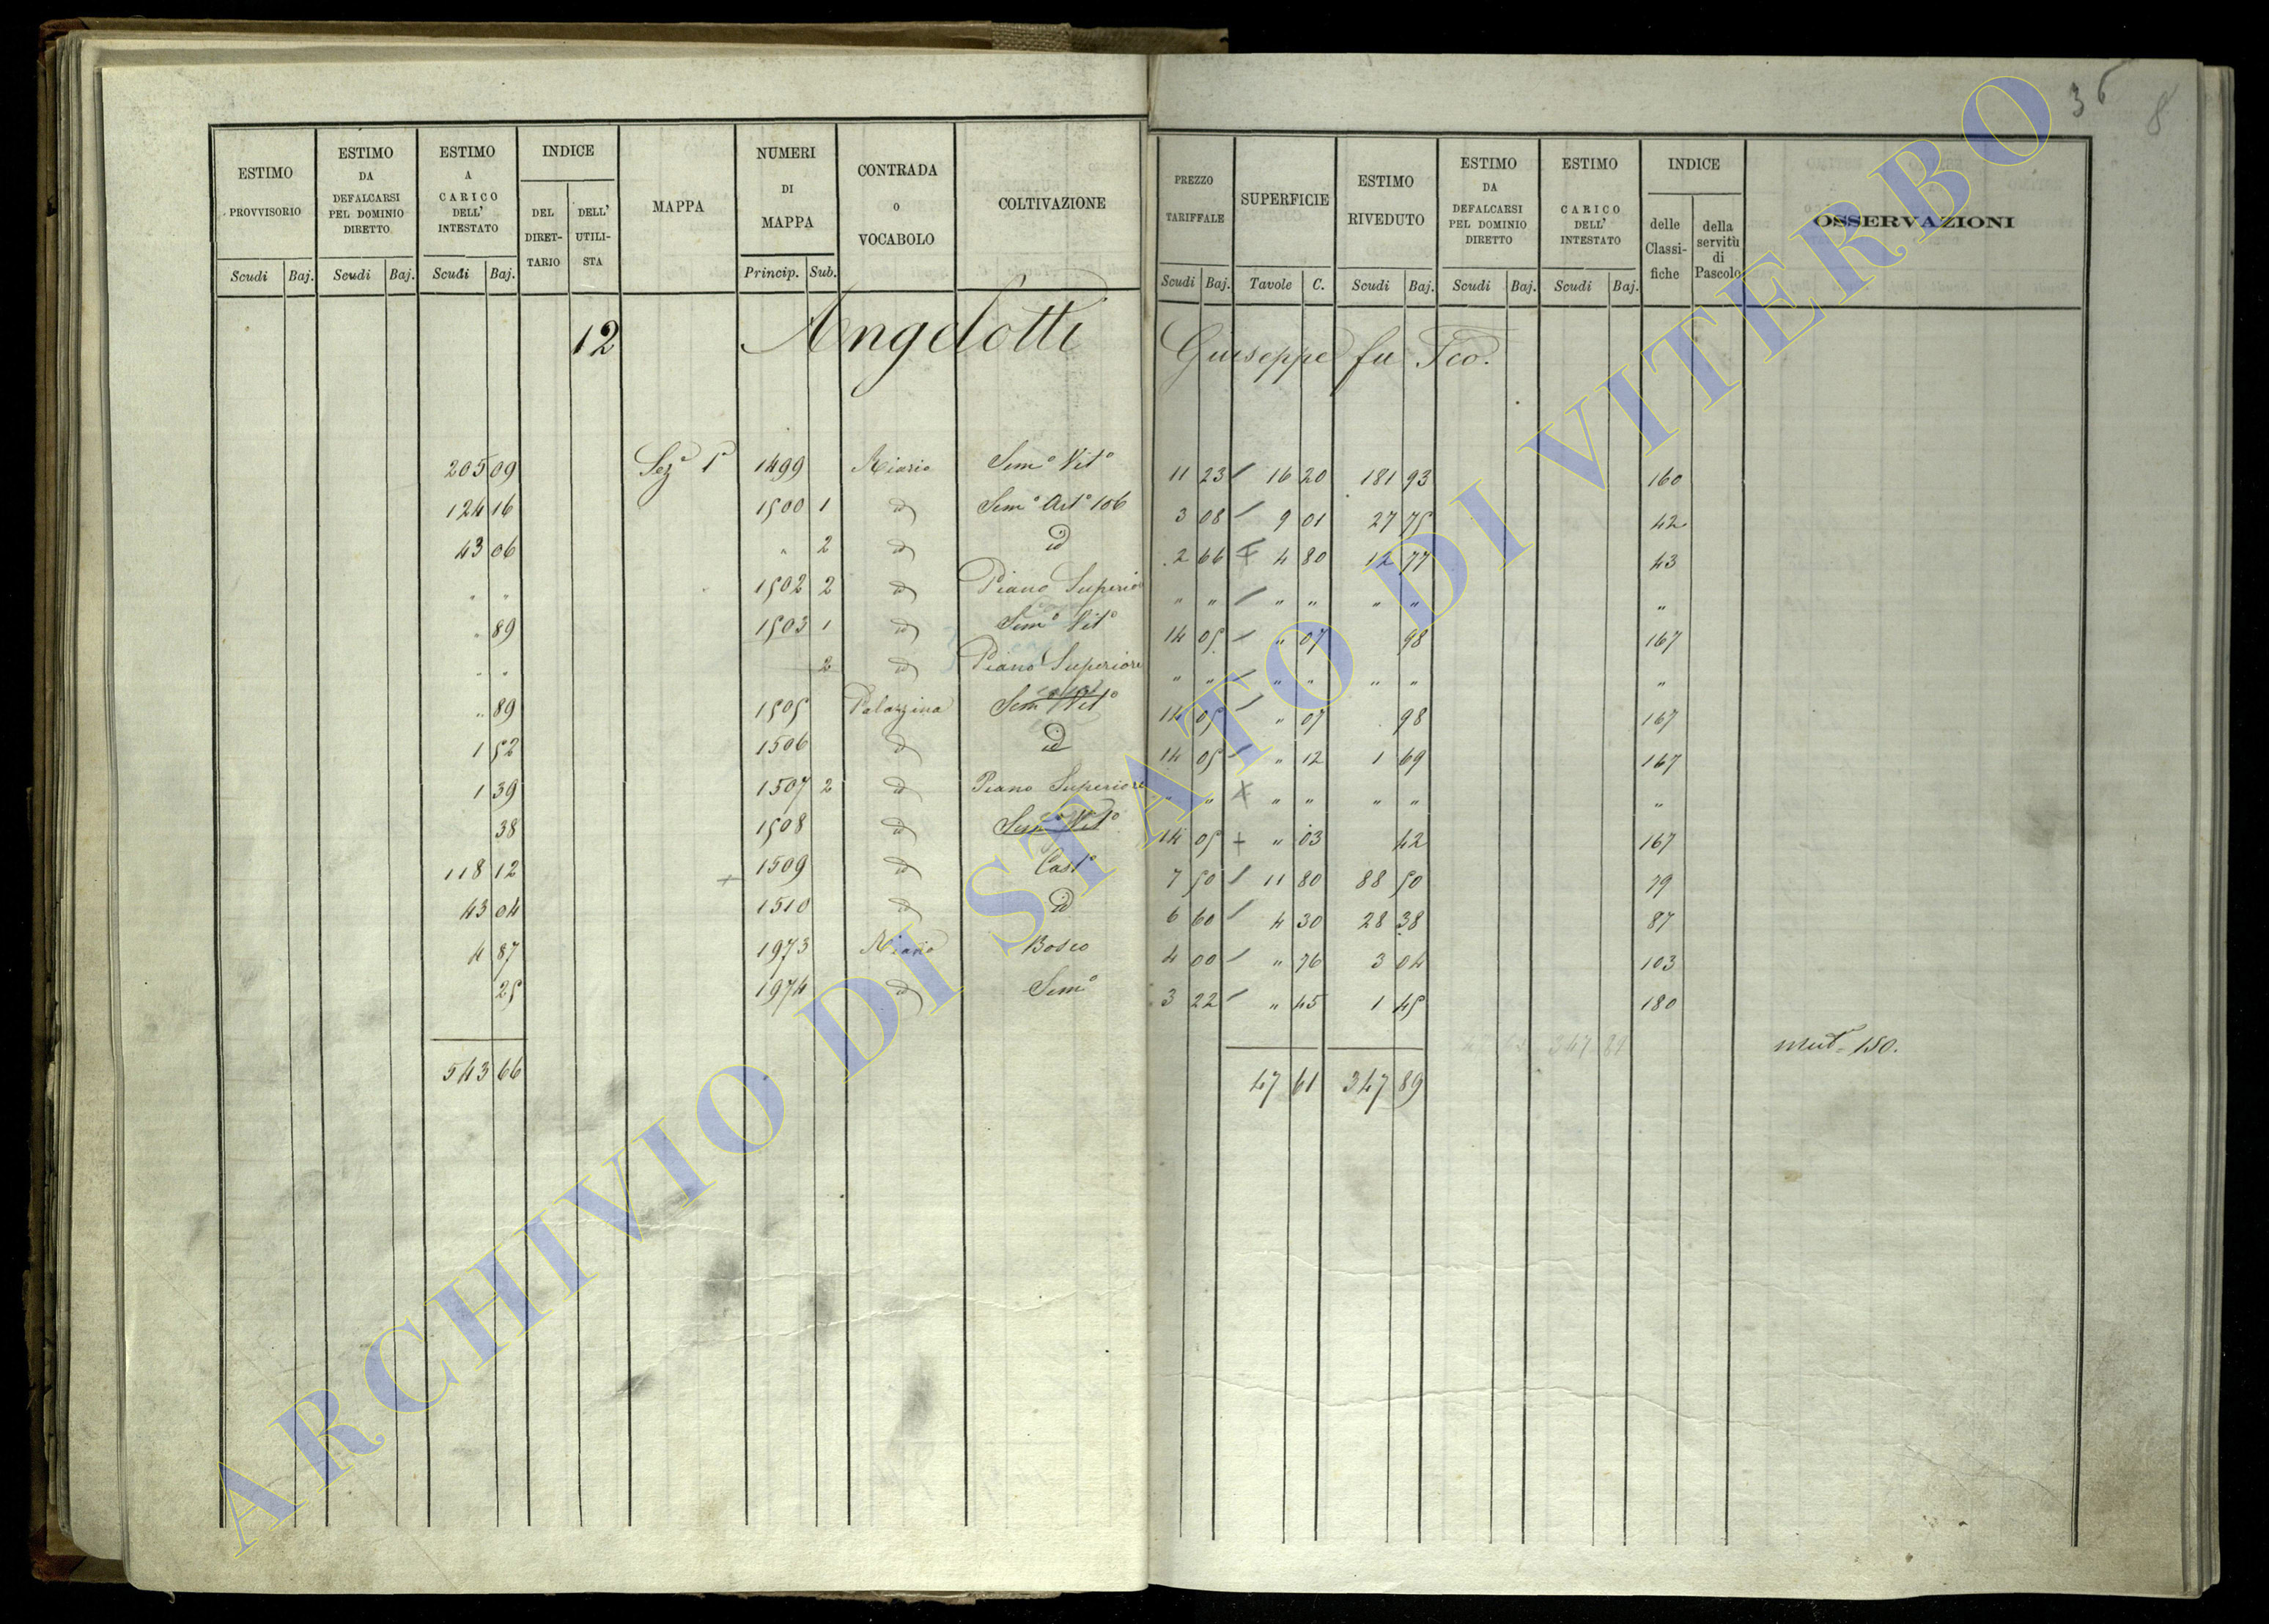 36 8
ESTIMO PROVVISORIO | ESTIMO DA DEFALCARSI PEL DOMINIO DIRETTO | ESTIMO A CARICO DELL' INTESTATO | INDICE DEL DIRET-TARIO | DELL' UTILI-STA | MAPPA | NUMERI DI MAPPA | CONTRADA o VOCABOLO | COLTIVAZIONE | PREZZO TARIFFALE | SUPERFICIE | ESTIMO RIVEDUTO | ESTIMO DA DEFALCARSI PEL DOMINIO DIRETTO | ESTIMO CARICO DELL' INTESTATO | INDICE delle Classi-fiche | della servitù di Pascolo | OSSERVAZIONI
Scudi Baj. | Scudi Baj. | Scudi Baj. | Princip. Sub. | Scudi Baj. | Tavole C. | Scudi Baj. | Scudi Baj. | Scudi Baj.
12 Angelotti Giuseppe fu Fco.
205 09 Sezе 1ª 1499 Riario Semo Vito 11 23 / 16 20 181 93 160
124 16 1500 1 id Semo Arto 106 3 08 / 9 01 27 75 42
43 06 " 2 id id 2 66 + 4 80 12 77 43
" " 1502 2 id Piano Superior " " / " " " " "
" 89 1503 1 id Semo Vito 14 05 / " 07 98 167
" " 2 id Piano Superiore " " / " " " " "
" 89 1505 Palazzina Semo Vito 14 05 / " 07 98 167
1 52 1506 id id 14 05 / " 12 1 69 167
1 39 1507 2 id Piano Superiore " " X " " " " "
38 1508 id Semo Vito 14 05 + " 03 42 167
118 12 + 1509 id Casto 7 50 / 11 80 88 50 79
43 04 1510 id id 6 60 / 4 30 28 38 87
4 87 1973 Riario Bosco 4 00 / " 76 3 04 103
25 1974 id Semo 3 22 / " 45 1 45 180
347 89 mut. 150.
543 66 47 61 347 89
ARCHIVIO DI STATO DI VITERBO